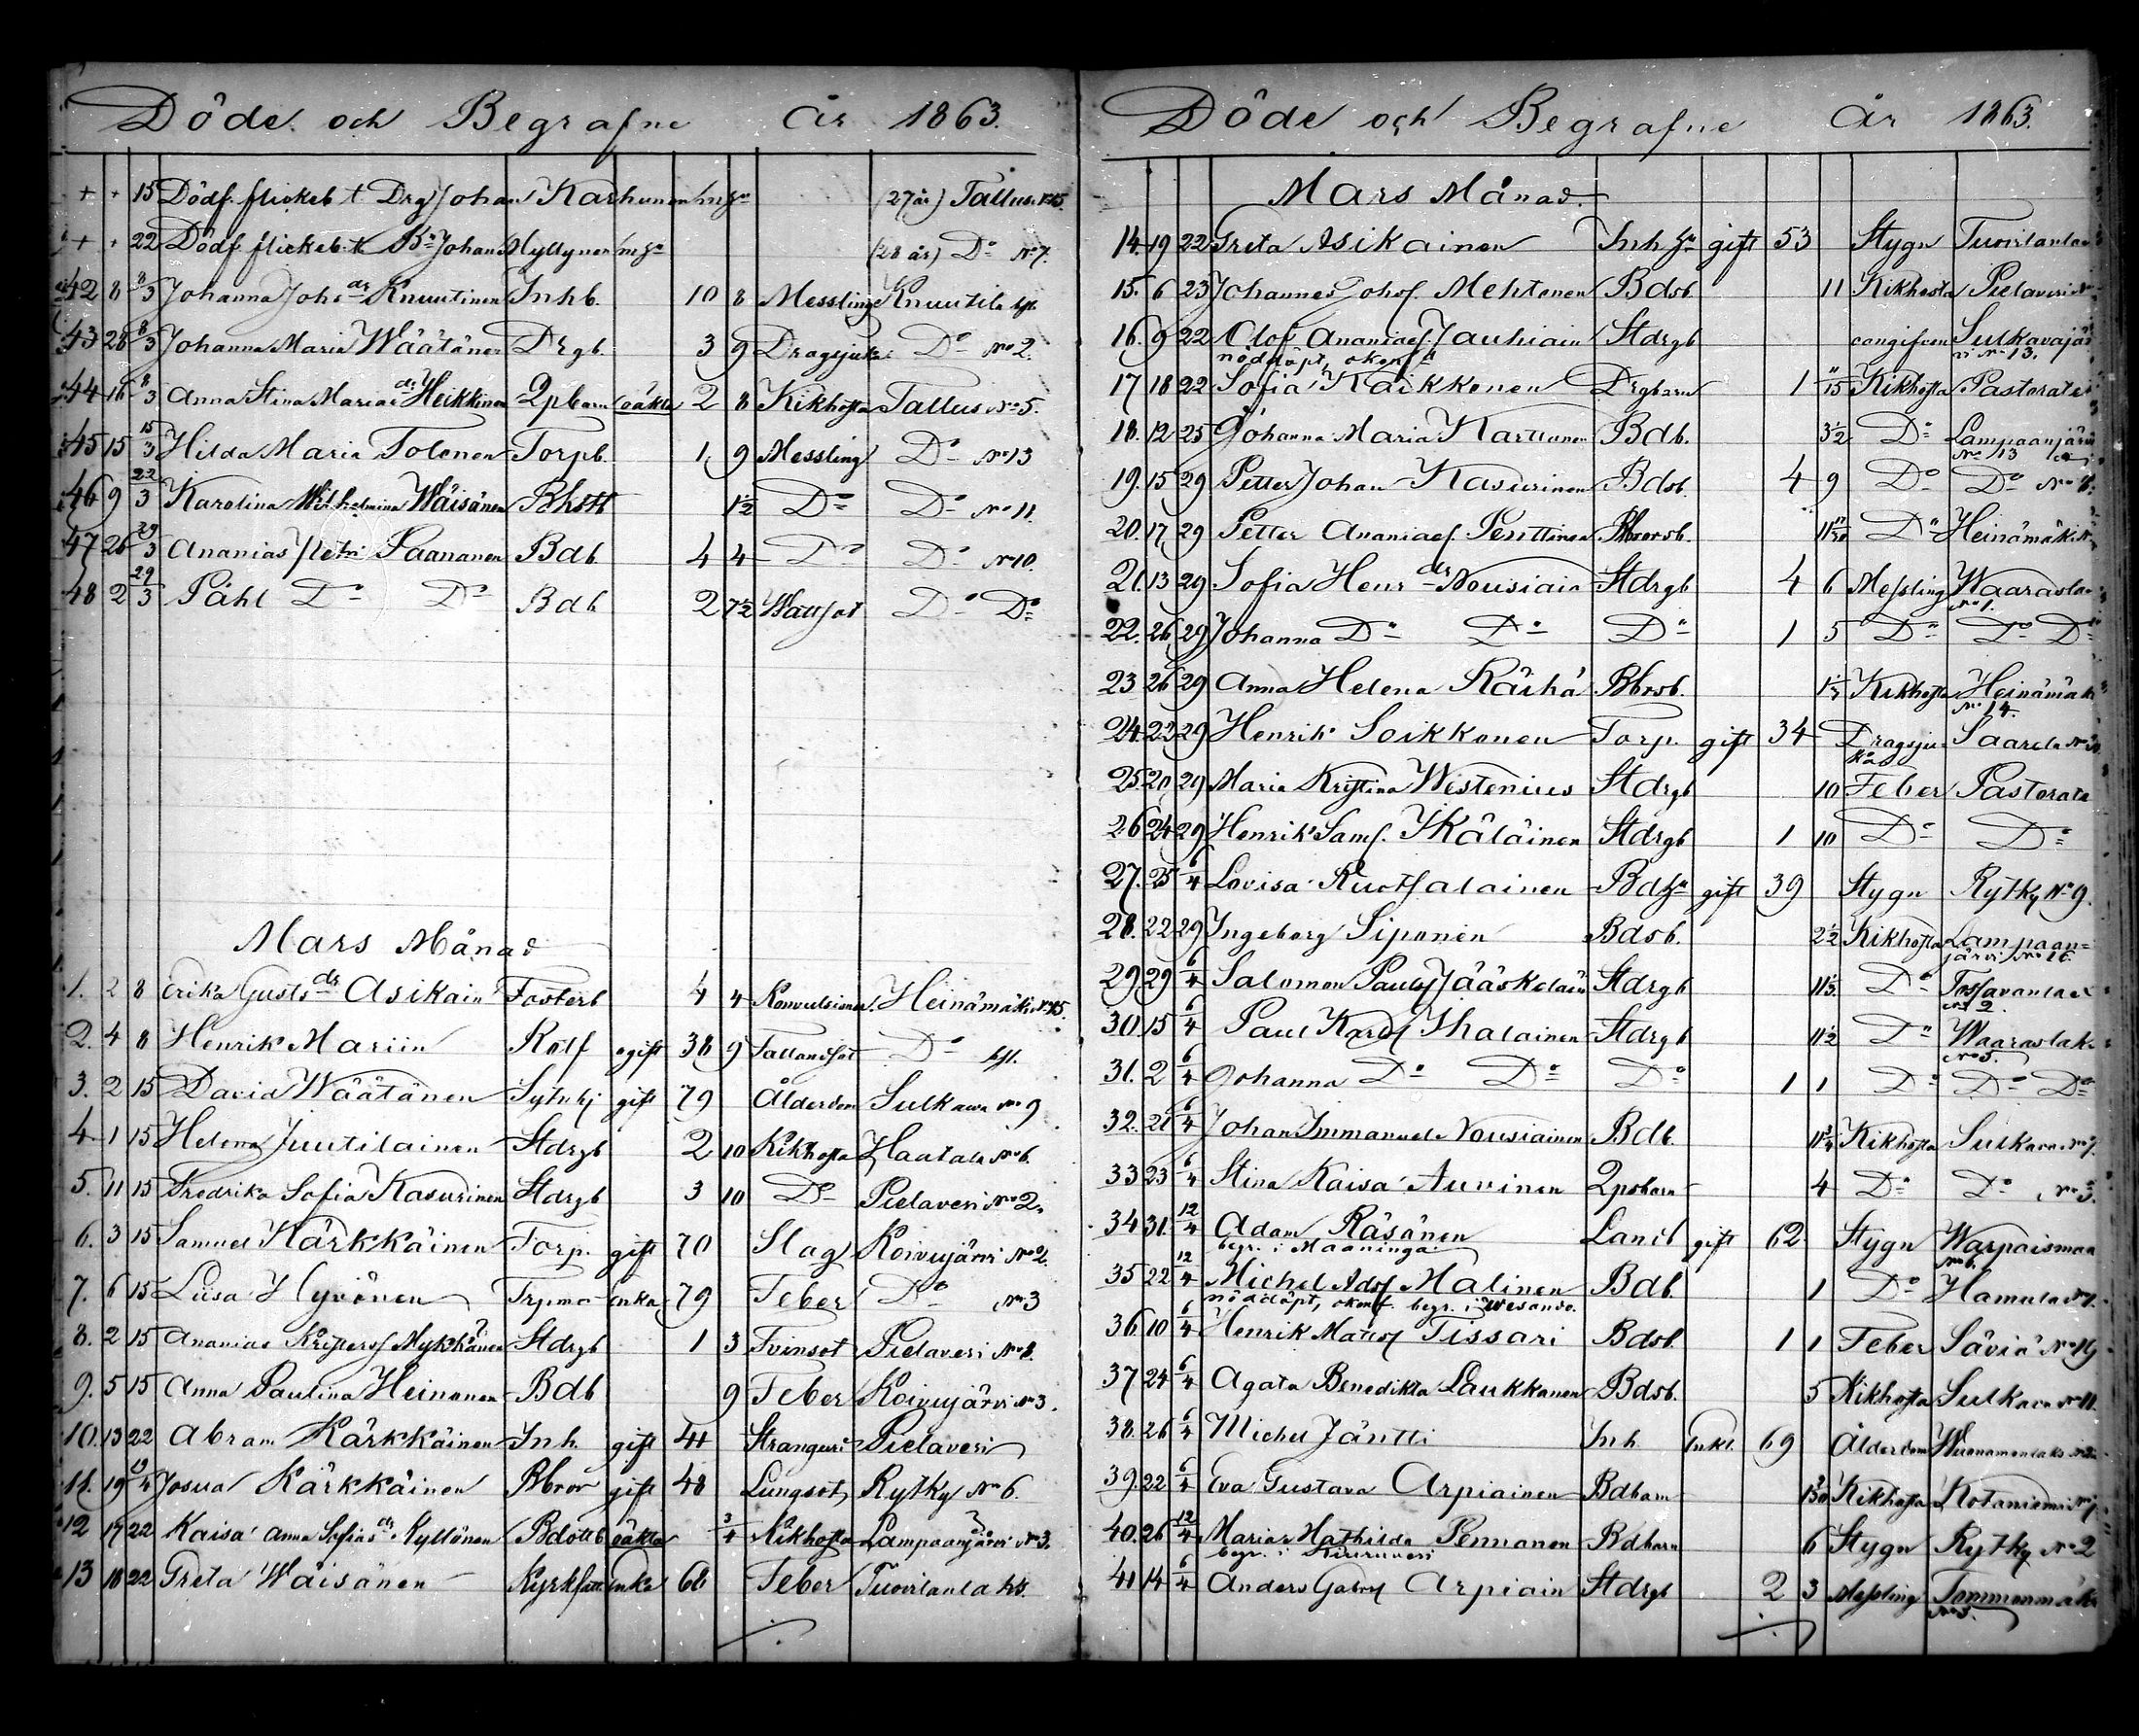 Döde och Begrafne År 1863.
+ + 15 Dödf. flickeb. t. Drg Johan Karhunen (27 år) Tallus N:15.
+ + 22 Dödf. flickeb. t. Johan Hyttynen (28 år) D:o N:7.
42 8 8/3 Johanna Johs dr Knuutinen Inhb. 10 8 Messling Knuutila
43 28 8/3 Johanna Maria Wäätänen Drgb. 3 9 Dragsjuka D:o No 2.
44 16 8/3 Anna Stina Marias dr Heikkinen Qpbarn oäkta 2 8 Kikhosta Tallus No 5.
45 15 15/3 Hilda Maria Tolonen Torpb. 1 9 Messling D:o No 13
46 9 22/3 Karolina Wilhelmina Wäisänen 1½ D:o D:o No 11.
47 26 29/3 Ananias Petri Paananen Bdb 4 4 D:o D:o No 10.
48 2 29/3 Påhl D:o D:o Bdb 2 7½ Wattsot D:o D:o
Mars Månad
1. 2 8 Erika Gusts dr Asikain Fosterb 4 4 Konvulsioner Heinämäki No 15.
2. 4 8 Henrik Mariin Rotf ogift 38 9 Fallandsot D:o
3. 2 15 David Wäätänen Sytnhj gift 79 Ålderdom Sulkava No 9
4. 1 15 Helena Juutilainen Stdrgb 2 10 Kikhosta Haatala No 6.
5. 11 15 Fredrika Sofia Kasurinen Stdrgb 3 10 D:o Pielaveri No 2.
6. 3 15 Samuel Kärkkäinen Torp. gift 70 Slag Koivujärvi No 2.
7. 6 15 Liisa Hyvönen Trpma enka 79 Feber D:o No 3
8. 2 15 Ananias Kristersf Mykkänen Stdrgb 1 3 Tvinsot Pielaveri No 8.
9. 5 15 Anna Paulina Heinonen Bdb 9 Feber Koivujärvi No 3.
10. 13 22 Abram Kärkkäinen Inh. gift 41 Stranguri Pielaveri
11. 19 Josua Kärkkäinen Bbror gift 48 Lungsot Rytky No 6.
12 17 22 Kaisa Anna Sofias dr Kyllönen Bdottb oäkta 3/4 Kikhosta Lampaanjärvi No 3.
13 18 22 Greta Wäisänen Kyrkfatt enka 68 Feber Tuovilanlaks.
Döde och Begrafne År 1863.
Mars Månad.
14. 19 22 Greta Asikainen Inh gift 53 Stygn Tuovilanlax
15. 6 23 Johannes Johsf. Mehtonen Bdsb 11 Kikhosta Pielaveri
16. 9 22 Olof Ananiasf. Jauhiain Stdrgb oangifven Sulkavajär
nöddöpt, okonf. vi No 13.
17 18 22 Sofia Kärkkönen Drgbarn 1 11/15 Kikhosta Pastorats
18. 12 25 Johanna Maria Karttunen Bdb. 3½ D:o Lampaanjärvi
No 13
19. 15 29 Petter Johan Kasurinen Bdsb. 4 9 D:o D:o
20. 17 29 Petter Ananiasf. Penttinen Bbrorsb. D:o Heinämäki
21. 13 29 Sofia Henr dr Nousiain Stdrgb 4 6 Messling Waaraslax
No 1.
22. 26 29 Johanna D:o D:o D:o 1 5 D:o D:o D:o
23 26 29 Anna Helena Räihä Bbrsb. Kikhosta Heinämäki
No 14.
24. 23 29 Henrik Soikkonen Torp. gift 34 Dragsju Saarela
ka
25. 20 29 Maria Kristina Westenius Stdrgb 10 Feber Pastorats
26 24 29 Henrik Samf. Ikäläinen Stdrgb 1 10 D:o D:o
27. 25 6/4 Lovisa Ruotsalainen gift 39 Stygn Rytky No 9.
28. 22 29 Ingeborg Siponen Bdsb. 2½ Kikhosta Lampaan=
järvi No 16.
29 29 6/4 Salomon Paulsf Jääskeläin Stdrgb D:o Tossavanlax
No 2.
30. 15 6/4 Paul Karlsf Ihalainen Stdrgb 11½ D:o Waaraslaks
No 5.
31. 2 6/4 Johanna D:o D:o D:o 1 1 D:o D:o D:o
32. 21 6/4 Johan Immanuel Nousiainen Bdb. Kikhosta Sulkava
33 23 6/4 Stina Kaisa Auvinen Qpsbarn 4 D:o D:o No 3.
34 31. 12/4 Adam Räsänen Landb gift 62 Stygn Warpaismaa
begr. i Maaninga. No 6.
35 22 12/4 Michel Adsf Malinen Bdb. 1 D:o Hamula
nöddöpt, okonf. begr. i Wesando.
36. 10 6/4 Henrik Matsf Tissari Bdsb. 1 1 Feber Säviä No 19
37 24 6/4 Agata Benedikta Laukkanen Bdsb. 5 Kikhosta Sulkava No 11.
38. 26 6/4 Michel Jäntti Inh. Enkl. 69 Ålderdom
39. 22 6/4 Eva Gustava Arpiainen Bdbarn Kikhosta Kotaniemi
40. 26 12/4 Maria Mathilda Pennanen Bdbarn 6 Stygn Rytky No 2
begr. i Kiuruvesi
41 14 6/4 Anders Gabrsf Arpiain Stdrgb 2 3 Messling Tommonmäki
No 3.